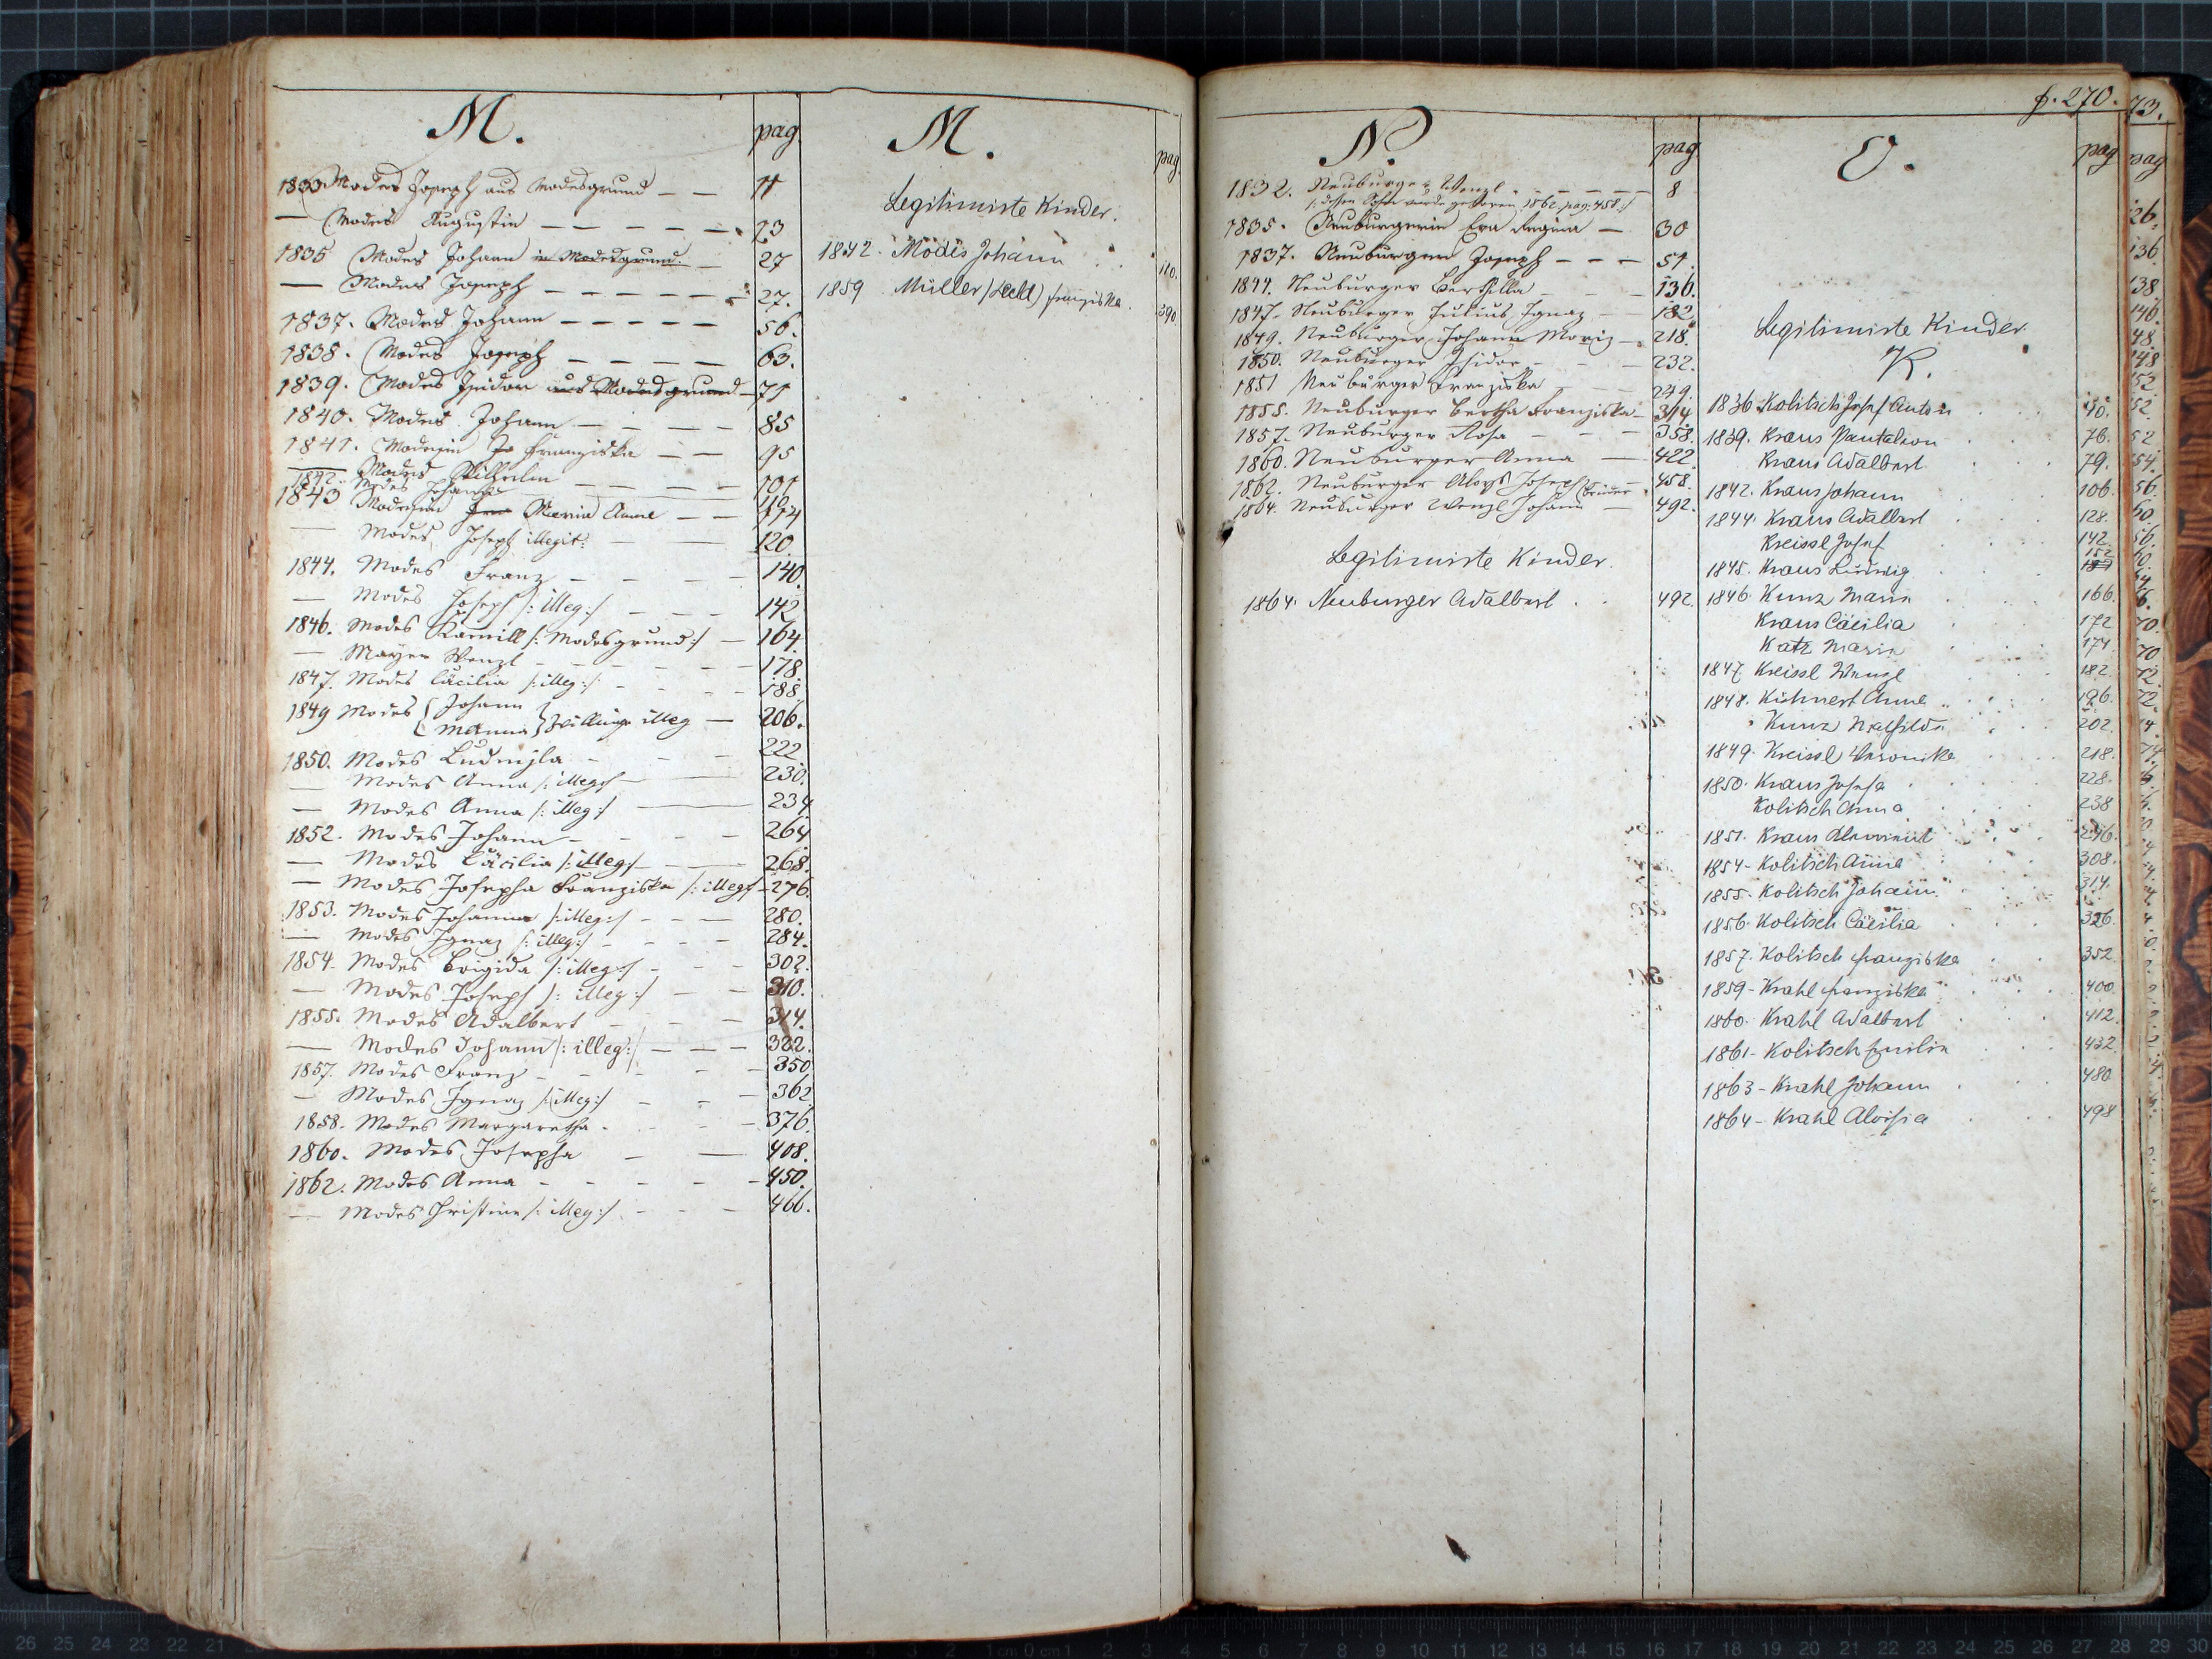 M.
pag.
1833 Modes Joseph aus Modesgrund — — 11
— Modes Augustin — — — — — 23
1835 Modes Johann in Modesgrund. — 27
— Modes Joseph — — — — — 27.
1837. Modes Johann — — — — — 56.
1838. Modes Joseph — — — — 63.
1839. Modes Isidor aus Modesgrund — 71
1840. Modes Johann — — — — 85
1841. Modesin Franziska — — 95
— Modes Wilhelm — — — — 101
1842. Modes Johann — 110.
1843 Modesin Maria Anna — — 114
— Modes Joseph illegit: — — 120.
1844. Modes Franz — — — — 140.
— Modes Joseph /: illeg:/ — — — 142
1846. Modes Kamill /: Modesgrund:/ — 164.
— Mayer Wenzl — — — — — 178.
1847. Modes Cäcilia /: illeg:/ — — — 188.
1849 Modes { Johann
M Anna } Zwillinge illeg — 206.
1850. Modes Ludmila — — — 222
— Modes Anna /: illeg:/ — 230.
— Modes Anna /: illeg:/ — 234
1852. Modes Johann — — — — 264
— Modes Cäcilia /: illeg:/ — — 268.
— Modes Josepha Franziska /: illeg:/ — 276.
1853. Modes Johanna /: illeg:/ — — — 280.
— Modes Ignaz /: illeg:/ — — — — 284.
1854. Modes Brigida /: illeg:/ — — — 302.
— Modes Joseph /: illeg:/ — — 310.
1855. Modes Adalbert — — — 314.
— Modes Johann /: illeg:/ — — — 322.
1857. Modes Franz — — — — — 350
— Modes Ignaz /: illeg:/ — — — 362
1858. Modes Margaretha — — — 376.
1860. Modes Josepha — — 408.
1862. Modes Anna — — — — — 450.
— Modes Christine /: illeg:/ — — — 466.
M.
pag.
Legitimirte Kinder.
1842. Modes Johann . . 110.
1859 Müller (Lechl) Franziska . 390
p. 270.
N.
pag
1832. Neuburger Wenzl — — — — — 8
/: dessen Sohn wurde geboren 1862. pag. 458:/
1835. Neuburgerin Eva Regina — 30
1837. Neuburger Joseph — — — 51.
1844. Neuburger — — — 136.
1847. Neuburger Julius Ignaz — — 182
1849. Neuburger Johann Moriz — 218.
1850. Neuburger Isidor — — — 232.
1851 Neuburger Franziska — — — 249.
1855. Neuburger Bertha Franziska — 314
1857. Neuburger Rosa — — — 358.
1860. Neuburger Anna — 422.
1862. Neuburger Aloys Joseph 458.
1864. Neuburger Wenzl Johann (Brüder — 492.
Legitimirte Kinder.
1864. Neuburger Adalbert . . 492.
O.
pag
Legitimirte Kinder
K.
1836 Kolitsch Josef Anton . . 40.
1839. Kraus Pantaleon . . 76.
Kraus Adalbert . . 79.
1842. Kraus Johann . . 106.
1844. Kraus Adalbert . . 128.
Kreissl Josef . . 142.
1845. Kraus Ludwig . . 152
1846. Kunz Marie . . 166.
Kraus Cäcilia . . 172
Katz Marie . . 174
1847 Kreissl Wenzl . . 182
1848. Kühnert Anna . . 196.
Kunz Mathilde . . 202.
1849. Kreissl Veronika . . 218.
1850. Kraus Josefa . . 228.
Kolitsch Anna . . 238
1851. Kraus Klement . . 246.
1854 - Kolitsch Anna . . 308.
1855. Kolitsch Johann . . 314.
1856. Kolitsch Cäcilia . . 326.
1857. Kolitsch Franziska . . 352
1859 - Krahl Franziska . . 400
1860. Krahl Adalbert . . 412.
1861 - Kolitsch Emilie . . 432.
1863 - Krahl Johann . . 480
1864 - Krahl Aloisia . . 498
73.
pag